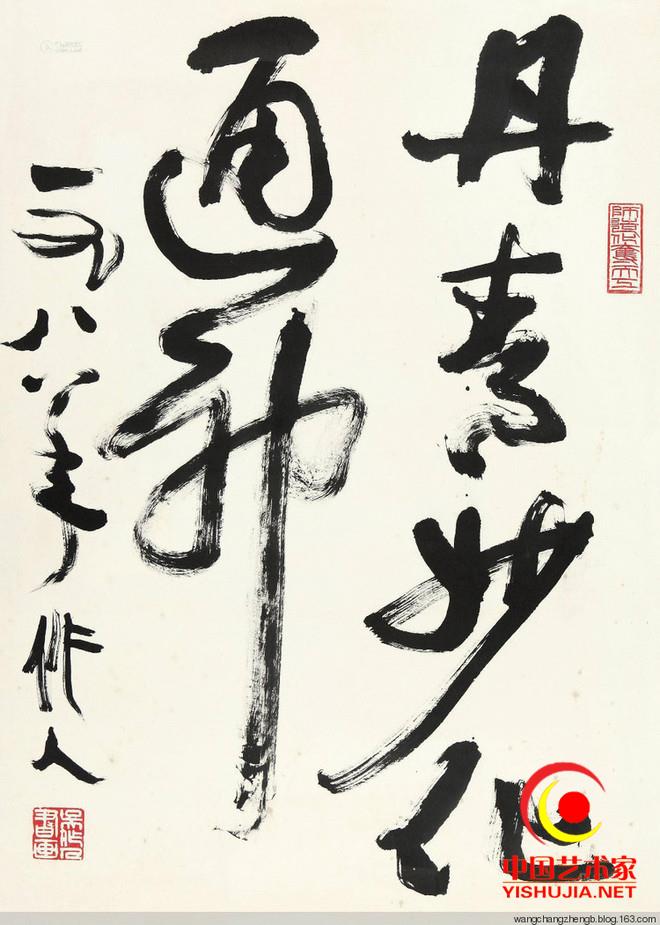 丹青妙化
通神
一九八八年 作人
吴作人書画
師造化奪天工
中国艺术家
YISHUJIA.NET
wangchangzhengb.blog.163.com